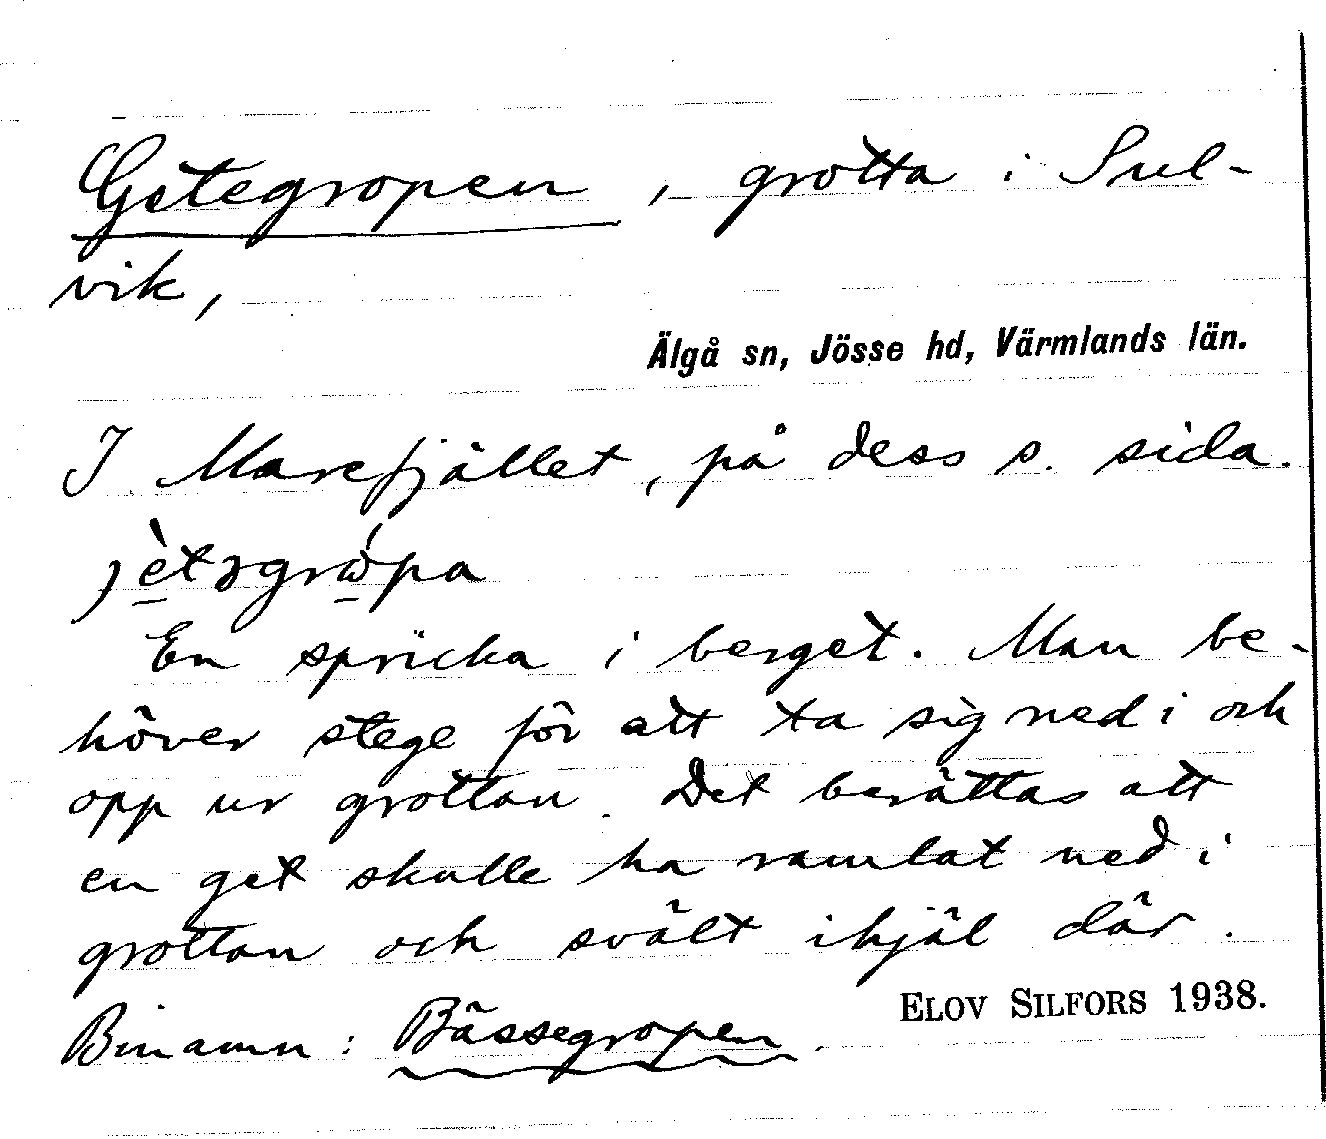 Getegropen, grotta i Sul-
vik,
Älgå sn, Jösse hd, Värmlands län.
I Marefjället, på dess s. sida.
jèt̀əgrὼpa
En spricka i berget. Man be-
höver stege för att ta sig ned i och
opp ur grottan. Det berättas att
en get skulle ha ramlat ned i
grottan och svält ihjäl där.
Binamn: Bässegropen.
ELOV SILFORS 1938.